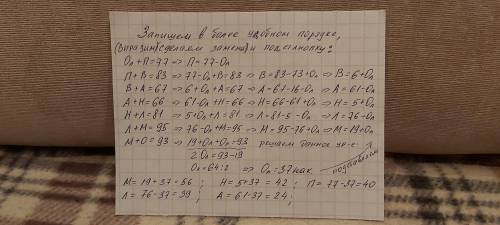 Запишем в более удобном порядке,
(выразим) сделаем замену и подстановку:
Ол + П = 77 => П = 77 - Ол
П + В = 83 => 77 - Ол + В = 83 => В = 83 - 73 + Ол => В = 6 + Ол
В + А = 67 => 6 + Ол + А = 67 => А = 61 - 16 - Ол => А = 61 - Ол
А + Н = 66 => 61 - Ол + Н = 66 => Н = 66 - 61 + Ол => Н = 5 + Ол
Н + Л = 81 => 5 + Ол + Л = 81 => Л = 81 - 5 - Ол => Л = 76 - Ол
Л + М = 95 => 76 - Ол + М = 95 => М = 95 - 76 + Ол => М = 19 + Ол
М + О = 93 => 19 + Ол + Ол = 93 решаем данное ур-е:
2 Ол = 93 - 19
Ол = 64 : 2 => Ол = 37 нак. подставляем
М = 19 + 37 = 56 ; Н = 5 + 37 = 42 ; П = 77 - 37 = 40
Л = 76 - 37 = 39 ; А = 61 - 37 = 24 ;